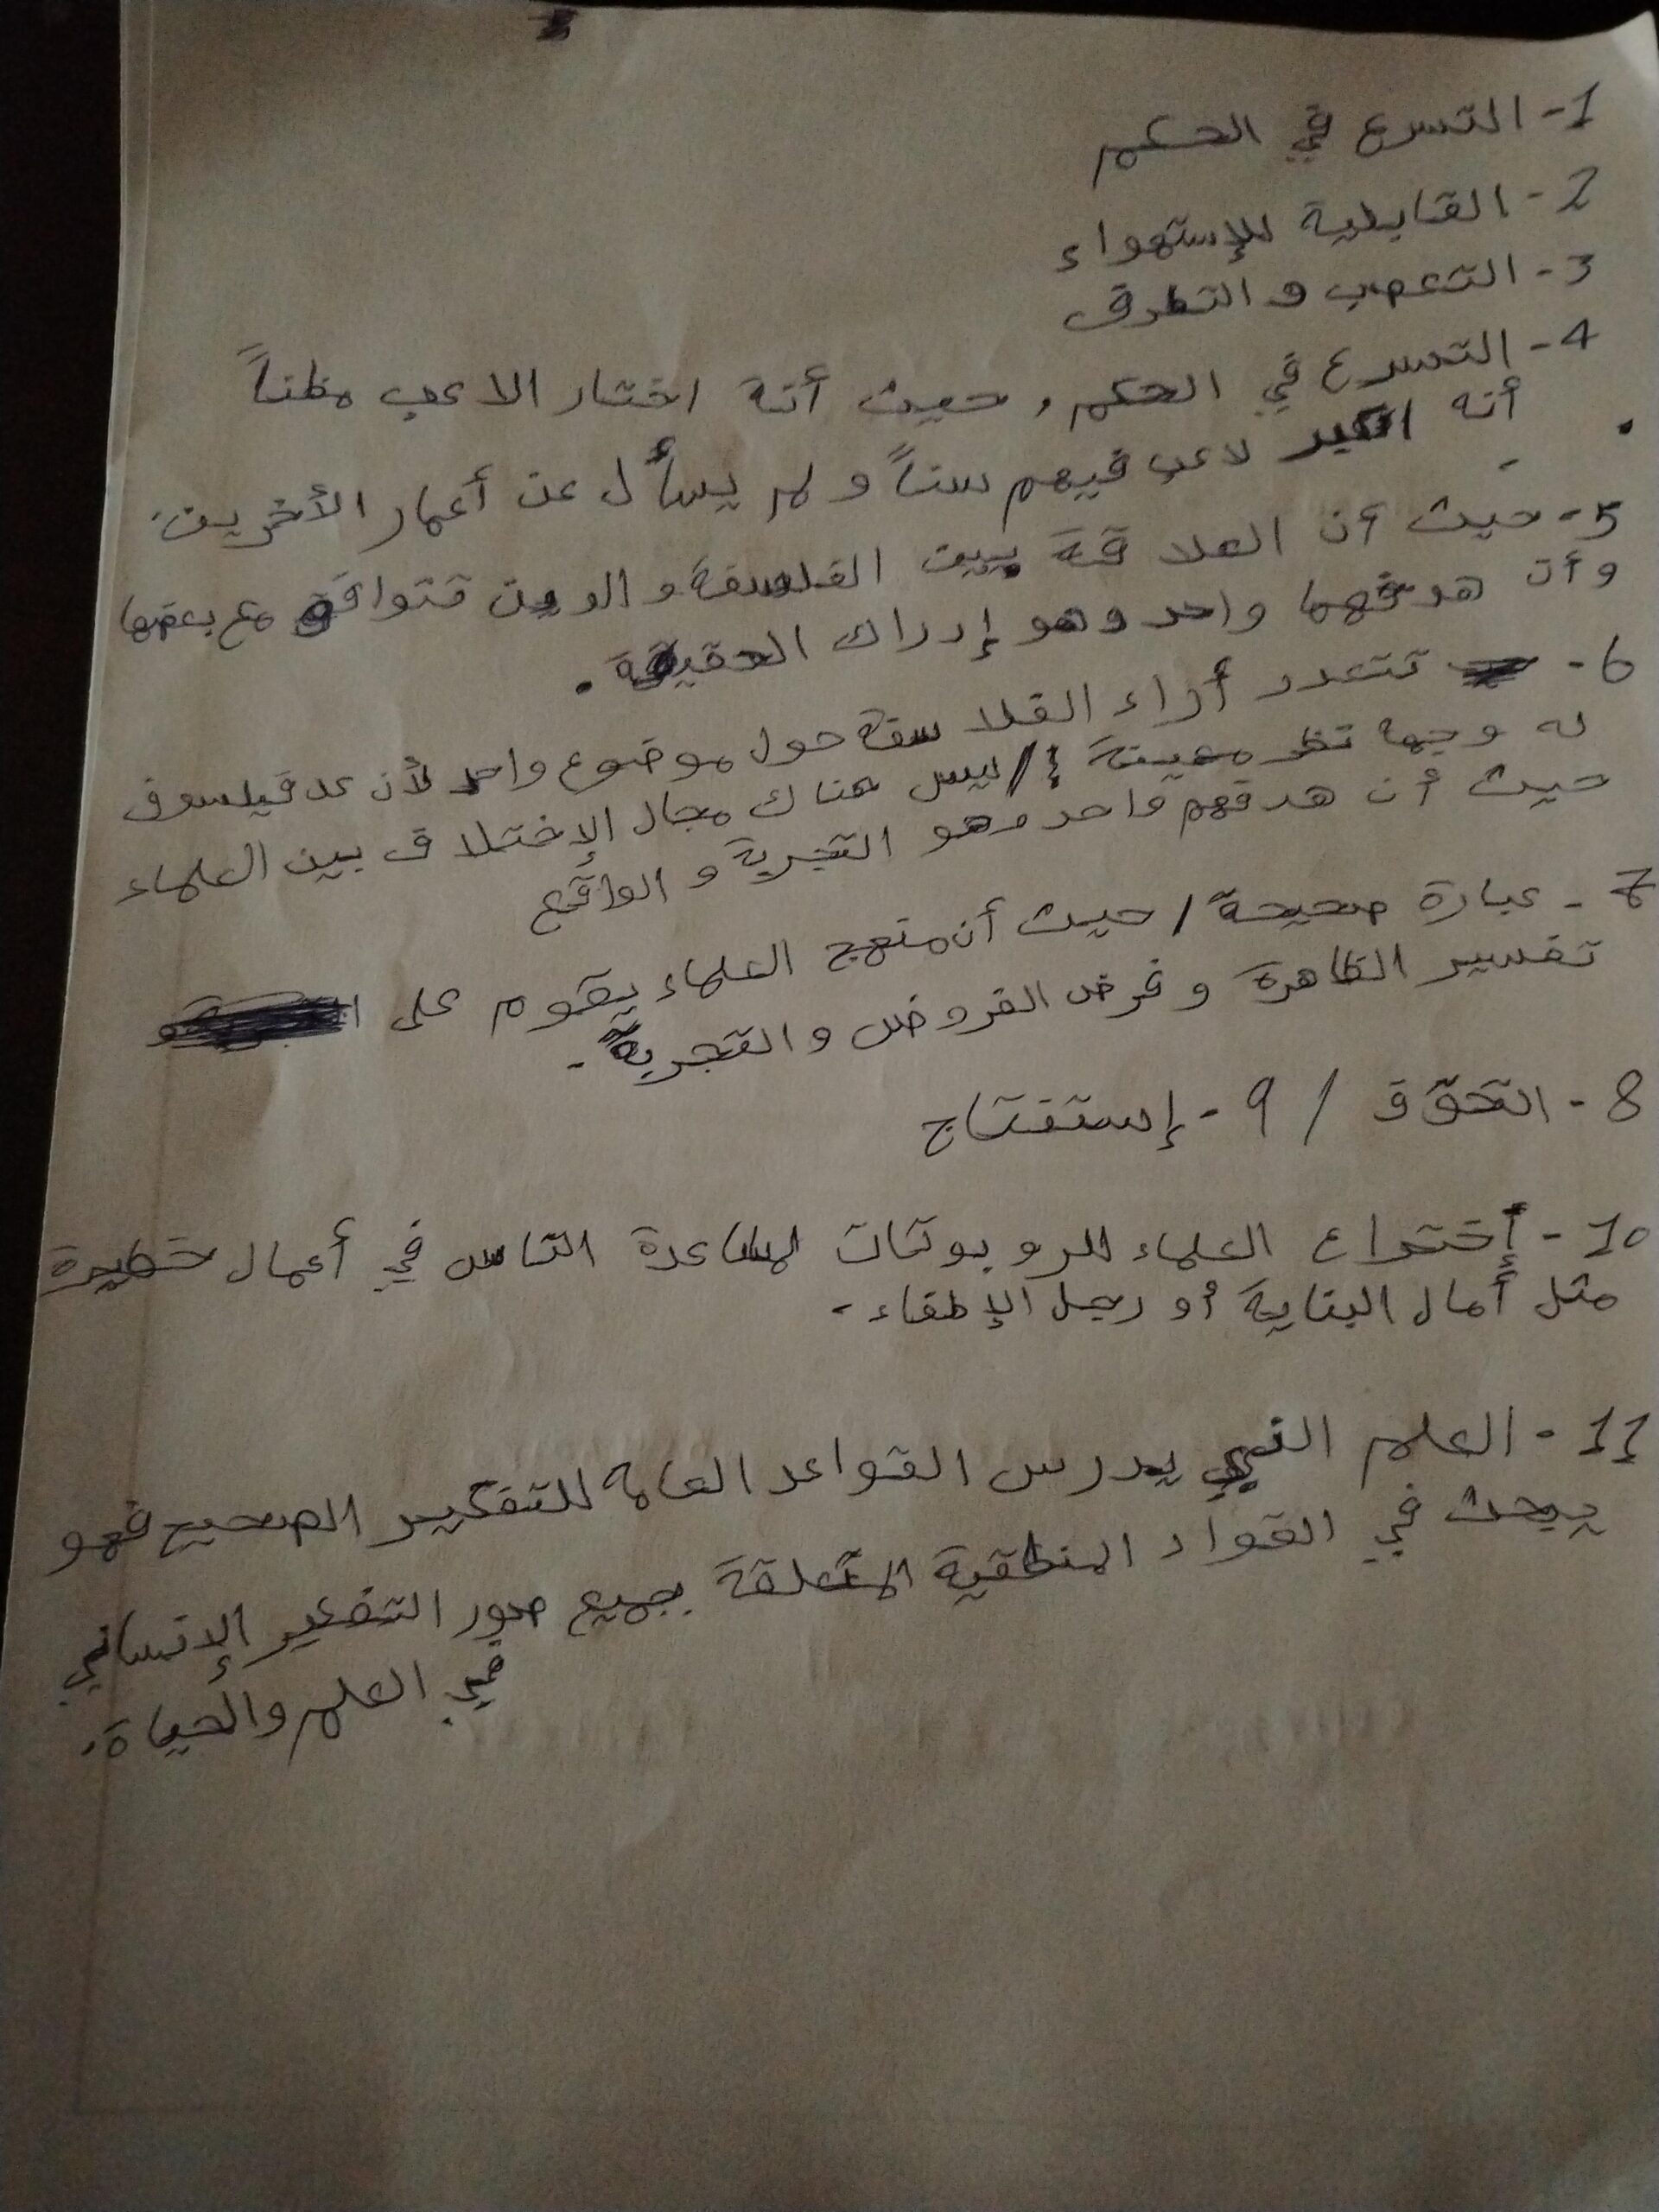 1- التسرع في الحكم
2- القابلية للإستهواء
3- التعصب و التطرف
4- التسرع في الحكم، حيث أنة اختار الاعب مظناً
أنه اكبر لاعب فيهم سناً و لم يسأل عن أعمار الأخرين.
5- حيث أن العلاقة بين الفلسفة و الدين تتوافق مع بعضها
وأن هدفهما واحد وهو إدراك الحقيقة.
6- تتعدد أراء الفلاسفة حول موضوع واحد لأن كل فيلسوف
له وجها نظر معينة / ليس هناك مجال الإختلاف بين العلماء
حيث أن هدفهم واحد وهو التجربة و الواقع
7- عبارة صحيحة / حيث أن منهج العلماء يقوم على
تفسير الظاهرة و فرض الفروض و التجربة.
8- التحقق / 9- إستنتاج
10- إختراع العلماء للروبوتات لمساعدة الناس في أعمال خطيرة
مثل أمال البناية أو رجل الإطفاء.
11- العلم الذي يدرس القواعد العامه للتفكير الصحيح فهو
يبحث في القواد المنطقية المتعلقة بجميع صور التفكير الإنساني
في العلم والحياة.